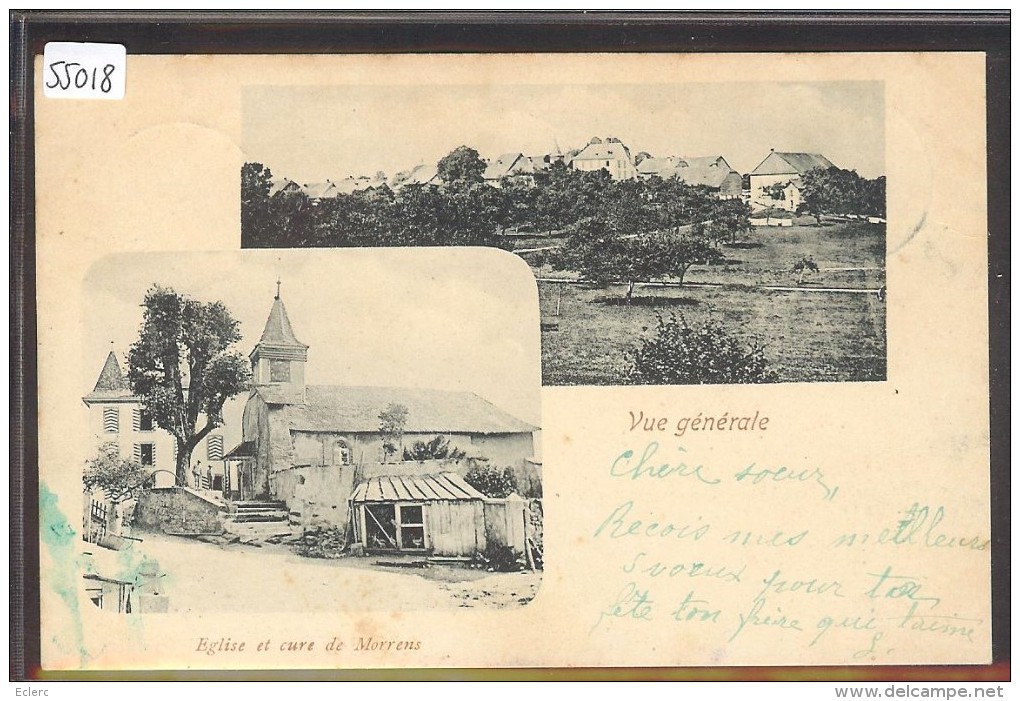 55018
Vue générale
Chère soeur,
Reçois mes meilleurs
voeux pour ta
fête ton frère qui t'aime
Eglise et cure de Morrens
Eclerc
www.delcampe.net